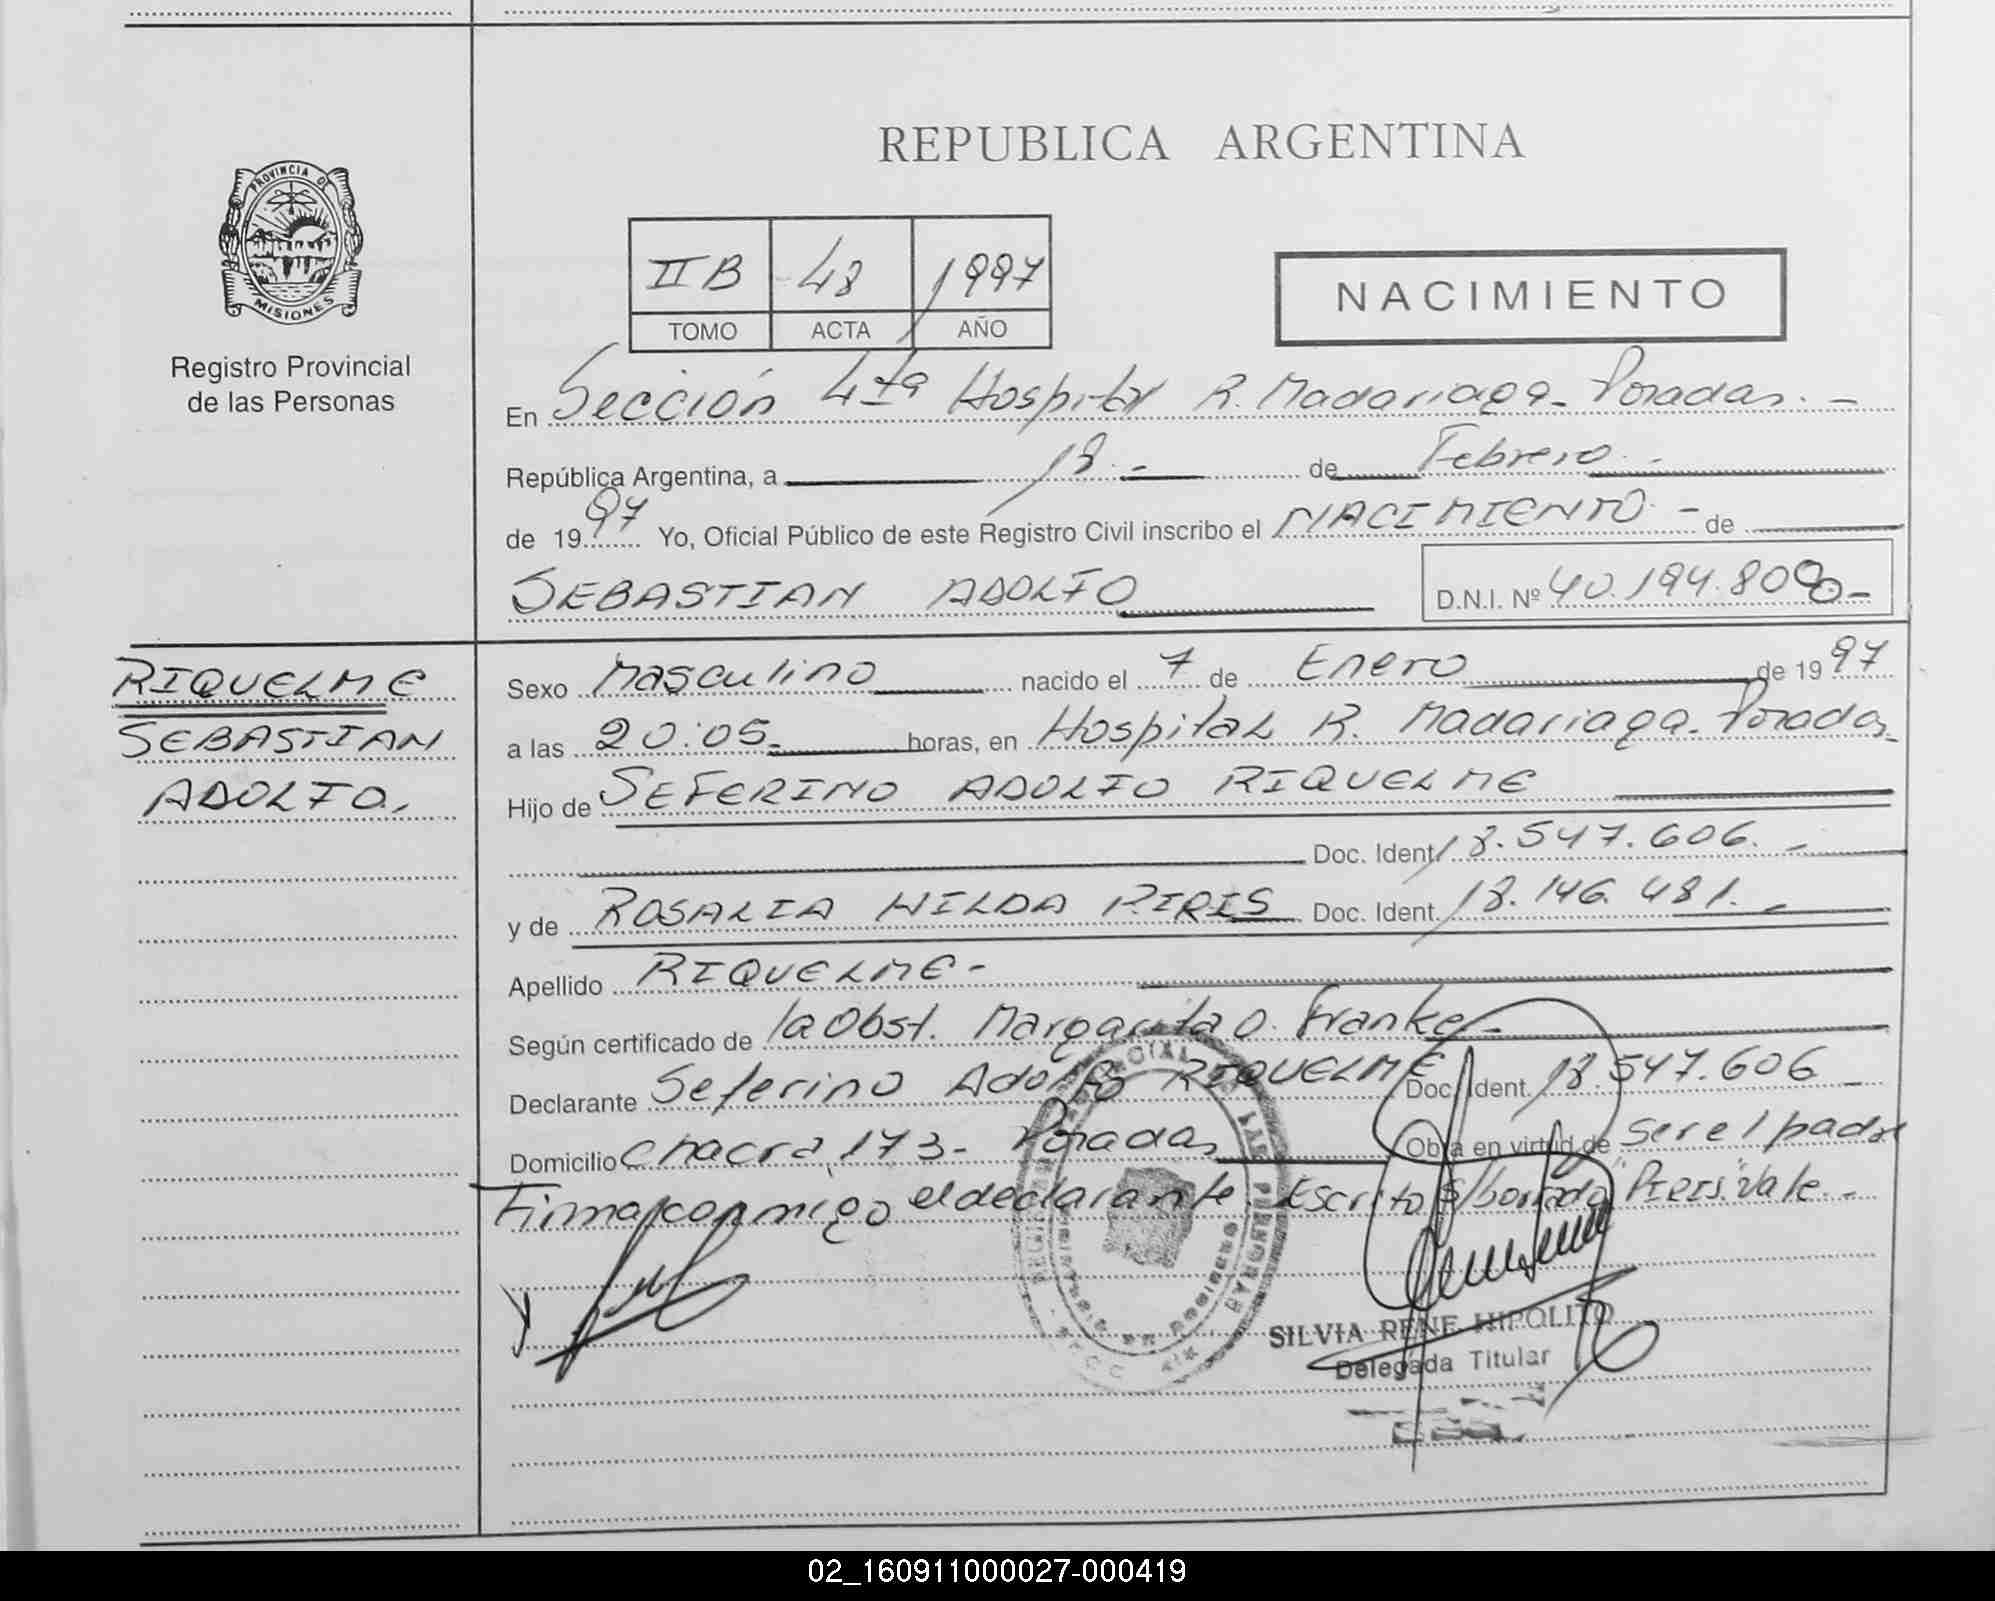 REPUBLICA ARGENTINA
PROVINCIA DE
MISIONES
Registro Provincial
de las Personas
II B 48 1997
TOMO ACTA AÑO
NACIMIENTO
En Sección 4ta Hospital R. Madariaga - Posadas. -
República Argentina, a 18. - de Febrero. -
de 1997 Yo, Oficial Público de este Registro Civil inscribo el NACIMIENTO - de
SEBASTIAN ADOLFO D.N.I. Nº 40.194.800-
RIQUELME
SEBASTIAN
ADOLFO.
Sexo Masculino nacido el 7 de Enero de 1997
a las 20:05- horas, en Hospital R. Madariaga - Posadas-
Hijo de SEFERINO ADOLFO RIQUELME
Doc. Ident. 18.547.606. -
y de ROSALIA HILDA PIRIS Doc. Ident. 18.146.481. -
Apellido RIQUELME -
Según certificado de la Obst. Margarita O. Franke -
Declarante Seferino Adolfo RIQUELME Doc. Ident. 18.547.606 -
Domicilio Chacra 173 - Posadas Obra en virtud de ser el padre
Firma conmigo el declarante. Escrito s/borrado "Piris" vale. -
SILVIA RENE HIPOLITO
Delegada Titular
02_160911000027-000419